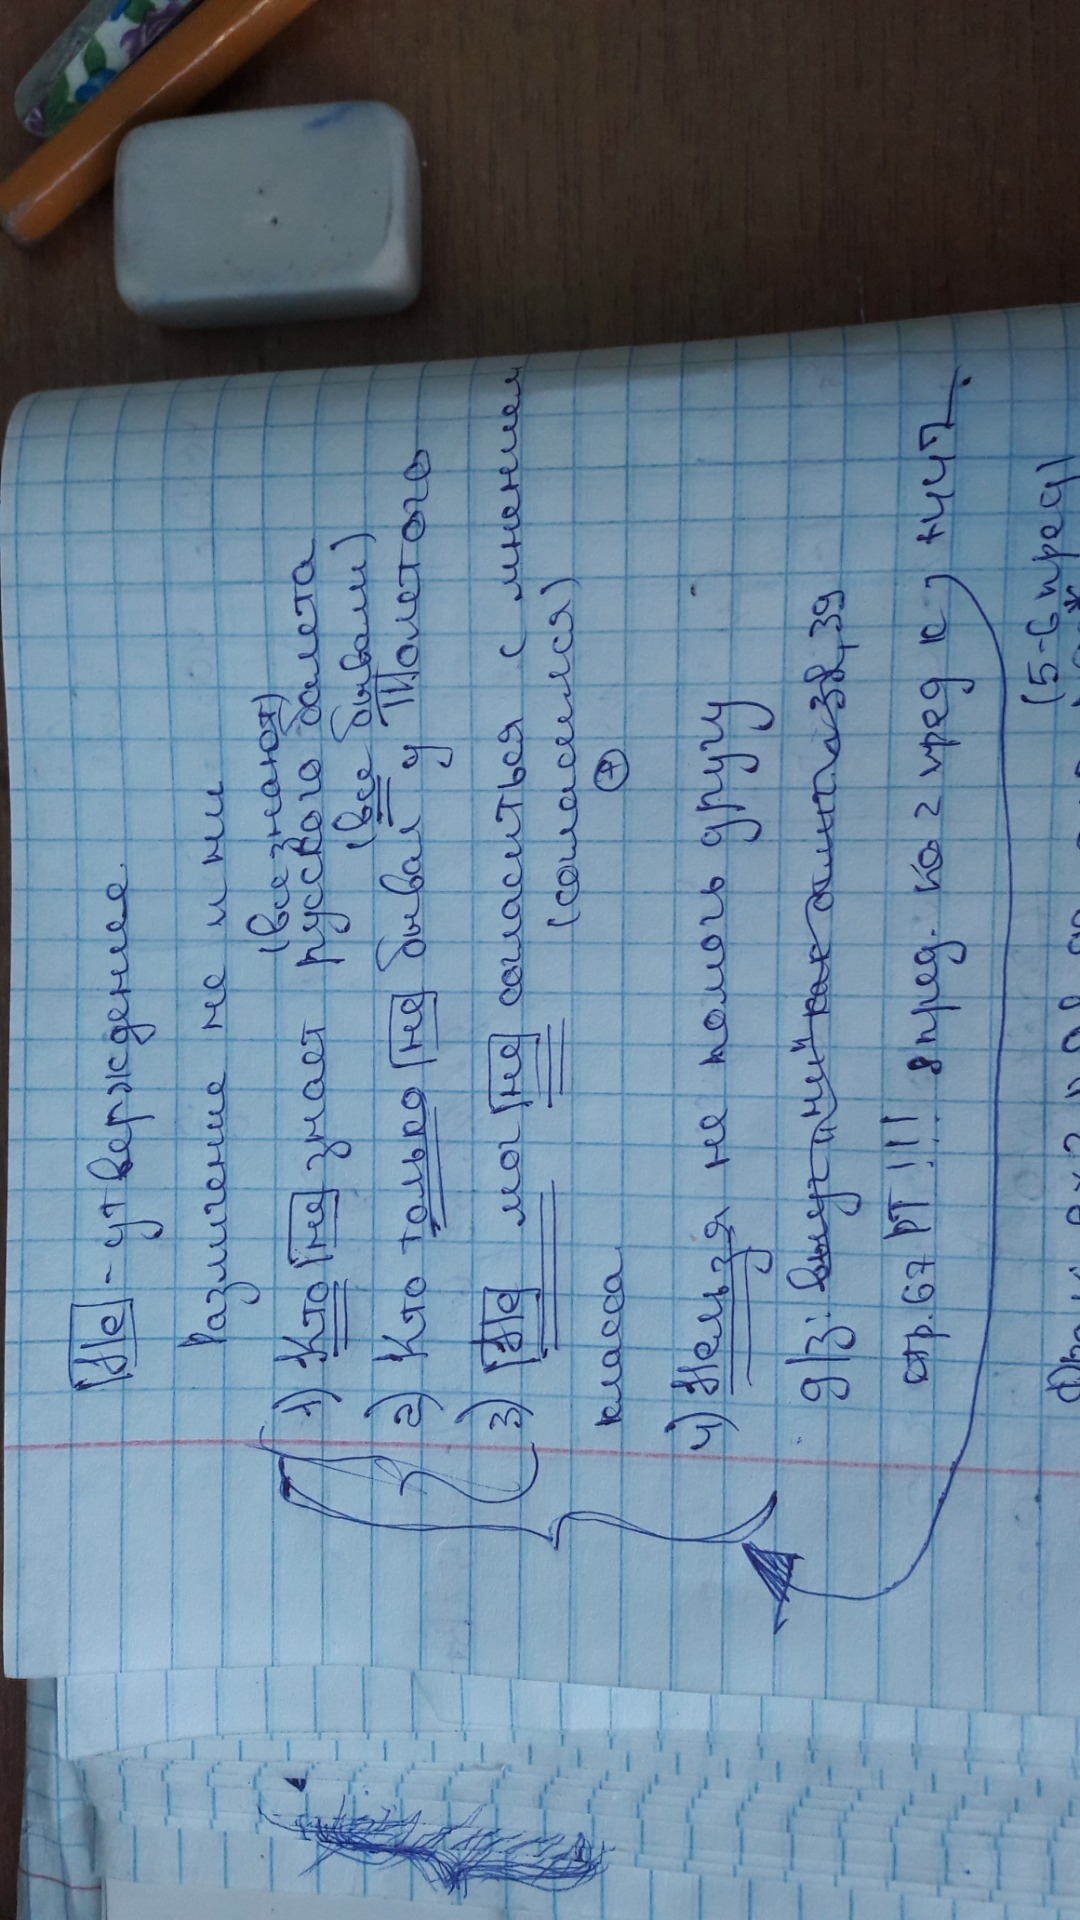 Не - утверждение
Различение не и ни
(все знают)
1) Кто не знает русского балета
(все бывали)
2) Кто только не бывал у Толстого
3) Не мог не согласиться с мнением
(согласился)
класса +
4) Нельзя не помочь другу
д/з: выуч "ни" как 38, 39
стр. 67 РТ!!! 8 пред. по 2 пред к
(5-6 пред)